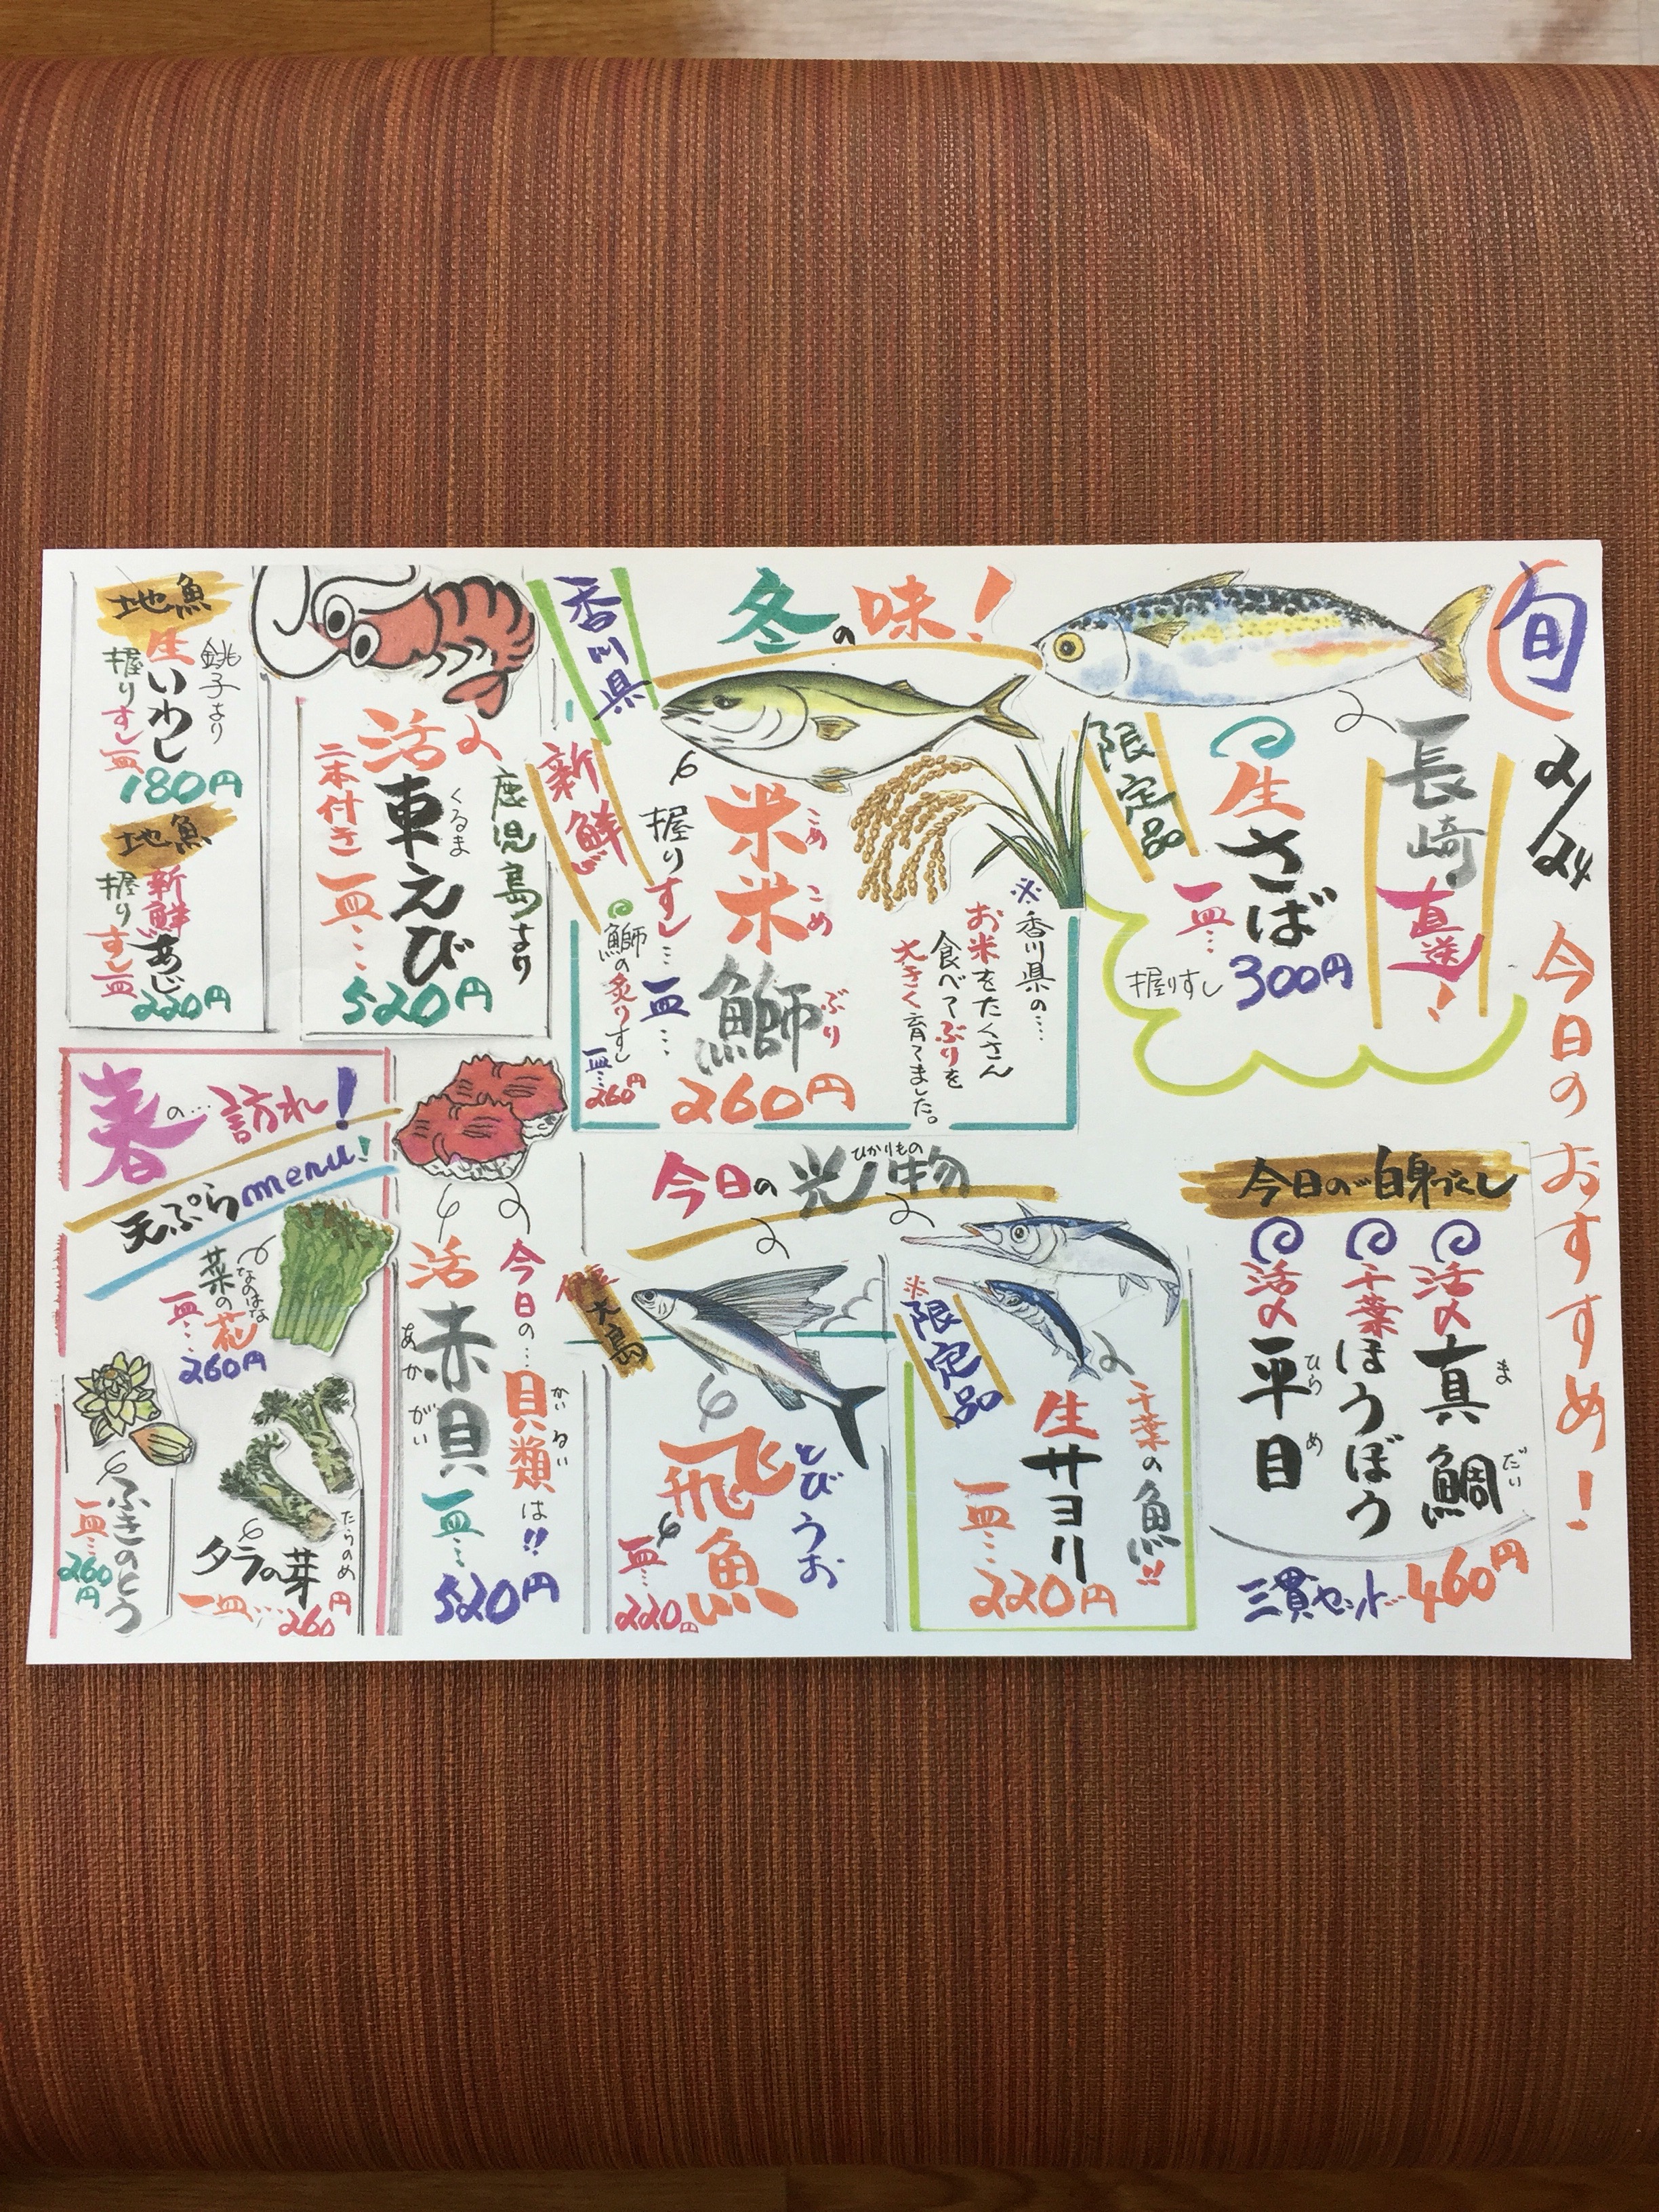 旬
2/24
今日のおすすめ!
長崎
直送!
生さば
一皿…
300円
握りすし
限定品
冬の味!
香川県
新鮮
米米鰤
こめ
こめ
ぶり
握りすし…一皿…
260円
鰤の炙りすし
一皿…260円
※香川県の…
お米をたくさん
食べてぶりを
大きく育てました。
鹿児島より
活〆
車えび
くるま
二本付き
一皿…
520円
地魚
銚子より
生いわし
握りすし一皿
180円
地魚
新鮮あじ
握りすし一皿
220円
今日の白身づくし
活〆真鯛
ま
だい
千葉ほうぼう
活〆平目
ひら
め
三貫セット…460円
今日の光り物
ひかりもの
千葉の魚!!
※限定品
生サヨリ
一皿…
220円
大島
飛魚
とびうお
一皿…
220円
今日の…貝類は!!
かい
るい
活赤貝
あか
がい
一皿…
520円
春の…訪れ!
天ぷらmenu!
菜の花
なのはな
一皿…
260円
タラの芽
たらのめ
一皿…260円
ふきのとう
一皿…
260円